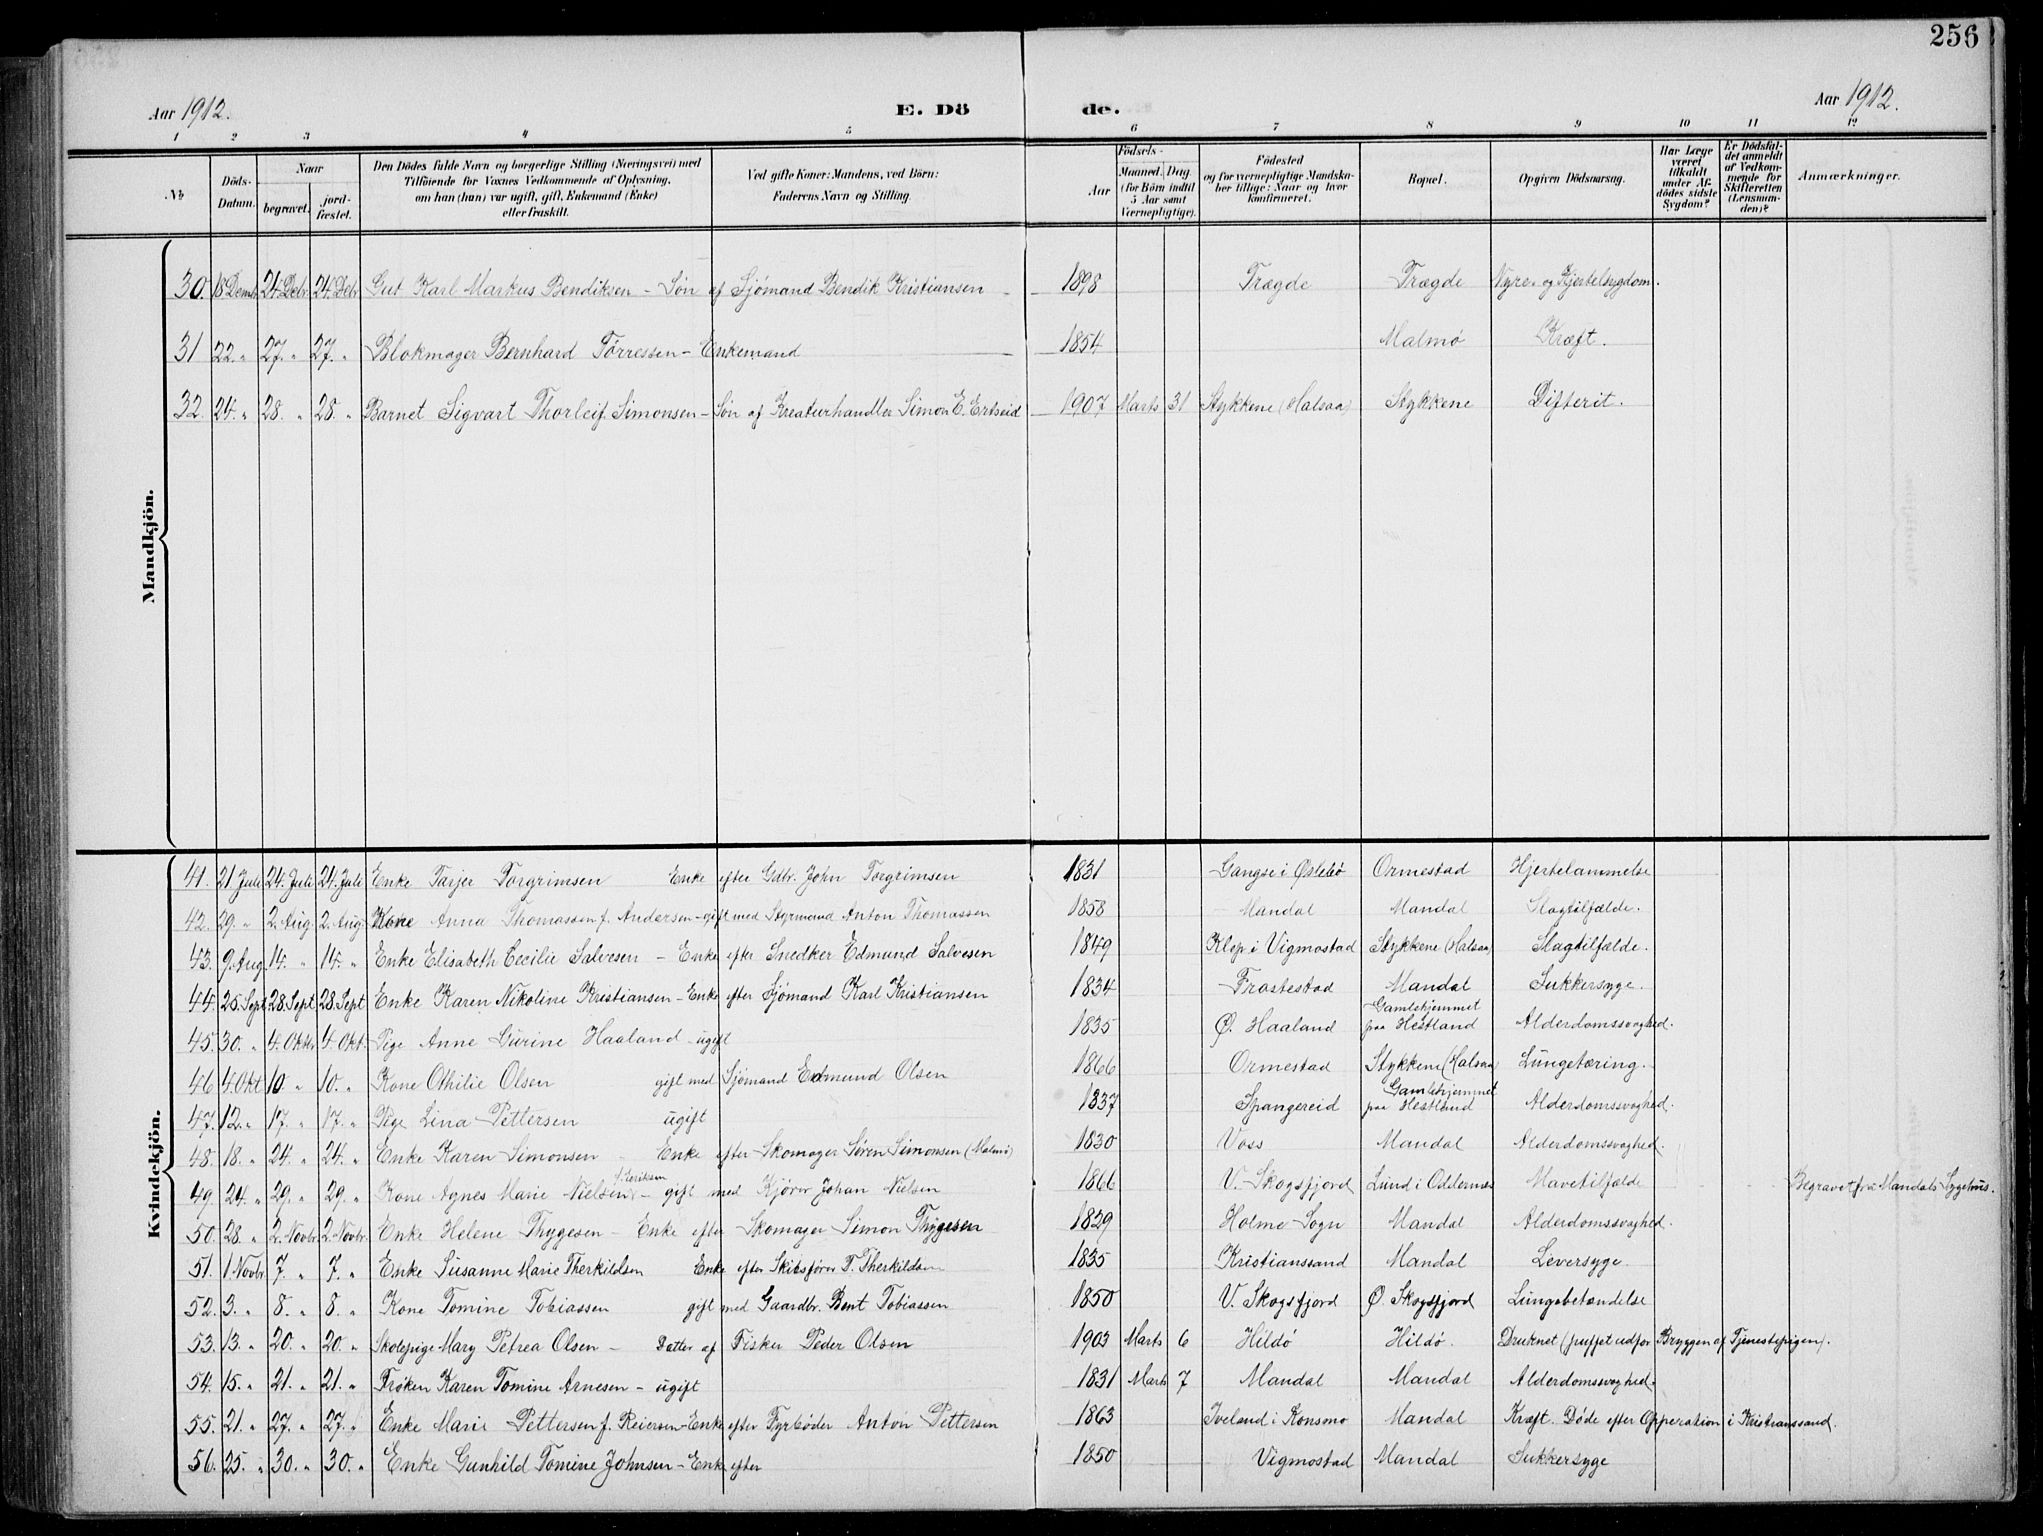 256
Aar 1912. E. Dö de. Aar 1912.
1 2 3 4 5 6 7 8 9 10 11 12
No
Döds-Datum.
Naar begravet. jord-fæstet.
Den Dödes fulde Navn og borgerlige Stilling (Næringsvei) med Tilföiende for Voxnes Vedkommende af Oplysning, om han (hun) var ugift, gift, Enkemand (Enke) eller fraskilt.
Ved gifte Koner: Mandens, ved Börn: Faderens Navn og Stilling.
Födsels- Aar Maaned. Dag. (for Börn indtil 5 Aar samt Værnepligtige).
Födested og for værnepligtige Mandskaber tillige: Naar og hvor konfirmeret.
Bopæl.
Opgiven Dödsaarsag.
Har Læge været tilkaldt under Afdödes sidste Sygdom?
Er Dödsfaldet anmeldt af Vedkommende for Skifteretten (Lensmanden)?
Anmærkninger.
Mandkjön.
30. 18 Decmbr 24. Debr 24. Debr Gut Karl Markus Bendiksen - Søn af Sjømand Bendik Kristiansen 1898 Trægde Trægde Nyre- og Hjertesygdom.
31 22. " 27. " 27. " Blokmager Bernhard Tørressen - Enkemand 1854 Malmø Kræft.
32. 24. " 28. " 28. " Barnet Sigvart Thorleif Simonsen - Søn af Kreaturhandler Simon E. Ertseid 1907 Marts 31 Stykkene (Halsaa) Stykkene Difterit.
Kvindekjön.
41. 21 Juli 24. Juli 24. Juli Enke Tarjer Torgrimsen Enke efter Gdbr. John Torgrimsen 1831 Gangse i Øslebø Ormestad Hjertelammelse
42. 29. " 2. Aug. 2. Aug. Kone Anna Thomassen f. Andersen - gift med Styrmand Anton Thomassen 1858 Mandal Mandal Slagtilfælde.
43. 9. Aug 14. " 14. " Enke Elisabeth Cecilie Salvesen - Enke efter Snedker Edmund Salvesen 1849 Klep i Vigmostad Stykkene (Halsaa) Slagtilfælde.
44. 25. Sept 28. Sept 28. Sept Enke Karen Nikoline Kristiansen - Enke efter Sjømand Karl Kristiansen 1834 Frostestad Mandal Sukkersyge.
45. 30. " 4. Oktbr 4. Okt. Pige Anne Gurine Haaland - ugift 1835 Ø. Haaland Gamlehjemmet paa Hestland Alderdomssvaghed.
46 4. Okt 10. " 10. " Kone Othilie Olsen gift med Sjømand Edmund Olsen 1866 Ormestad Stykkene (Halsaa) Lungetæring.
47. 12. " 17. " 17. " Pige Lina Pettersen ugift 1837 Spangereid Gamlehjemmet paa Hestland Alderdomssvaghed.
48. 18. " 24. " 24. " Enke Karen Simonsen - Enke efter Skomager Søren Simonsen (Malmø) 1830 Voss Mandal Alderdomssvaghed.
49. 24. " 29. " 29. " Kone Agnes Marie Nielsen f. Eeriksen - gift med Kjører Johan Nielsen 1866 V. Skogsfjord Lund i Oddernes Mavetilfælde Begravet fra Mandals Sygehus.
50. 28. " 2. Novbr. 2. Novbr. Enke Helene Thygesen - Enke efter Skomager Simon Thygesen 1829 Holme Sogn Mandal Alderdomssvaghed.
51. 1. Novbr. 7. " 7. " Enke Susanne Marie Therkildsen Enke efter Skibsfører T. Therkildsen 1835 Kristianssand Mandal Leversyge.
52. 3. " 8. " 8. " Kone Tomine Tobiassen gift med Gaardbr. Bent Tobiassen 1850 V. Skogsfjord Ø. Skogsfjord Lungebetændelse
53. 13. " 20. " 20. " Skolepige Mary Petrea Olsen - Datter af Fisker Peder Olsen 1903 Marts 6 Hildø Hildø. Druknet (puffet udfor Bryggen af Tjenestepigen).
54. 15. " 21. " 21. " Frøken Karen Tomine Arnesen - ugift 1831 Marts 7 Mandal Mandal Alderdomssvaghed.
55. 21. " 27. " 27. " Enke Marie Pettersen f. Reiersen - Enke efter Fyrbøder Anton Pettersen 1863 Iveland i Konsmo Mandal Kræft. Døde efter Opperation i Kristianssand.
56. 25. " 30. " 30. " Enke Gunhild Tomine Johnsen - Enke efter 1850 Vigmostad Mandal Sukkersyge